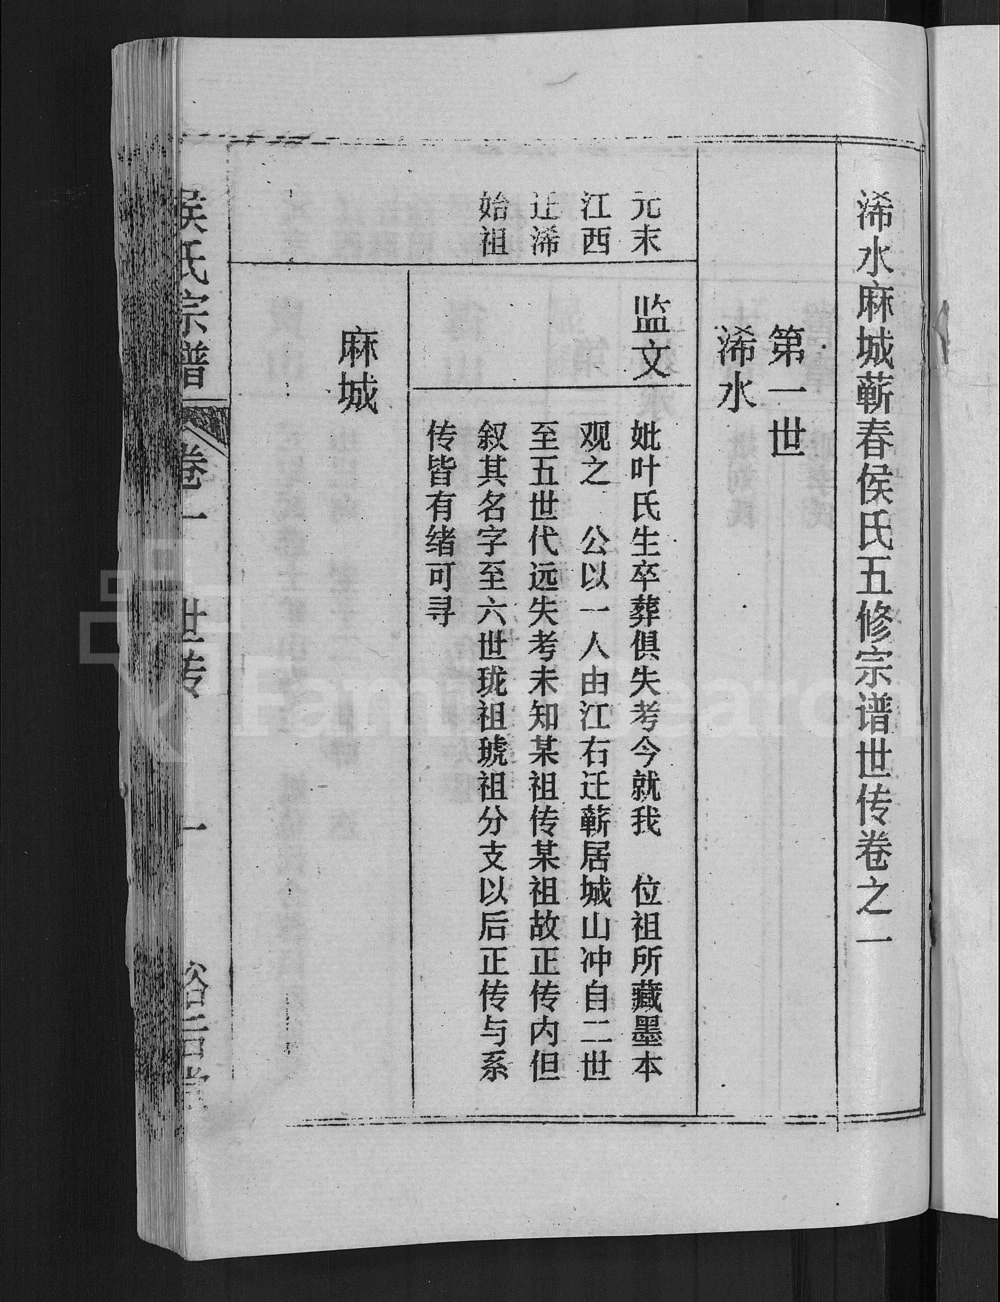 浠水麻城蕲春侯氏五修宗谱世传卷之一
第一世
浠水
元末
江西
迁浠
始祖
监文
妣叶氏生卒葬俱失考今就我　位祖所藏墨本
观之　公以一人由江右迁蕲居城山冲自二世
至五世代远失考未知某祖传某祖故正传内但
叙其名字至六世珑祖琥祖分支以后正传与系
传皆有绪可寻
麻城
侯氏宗谱
卷一
世传
一
FamilySearch